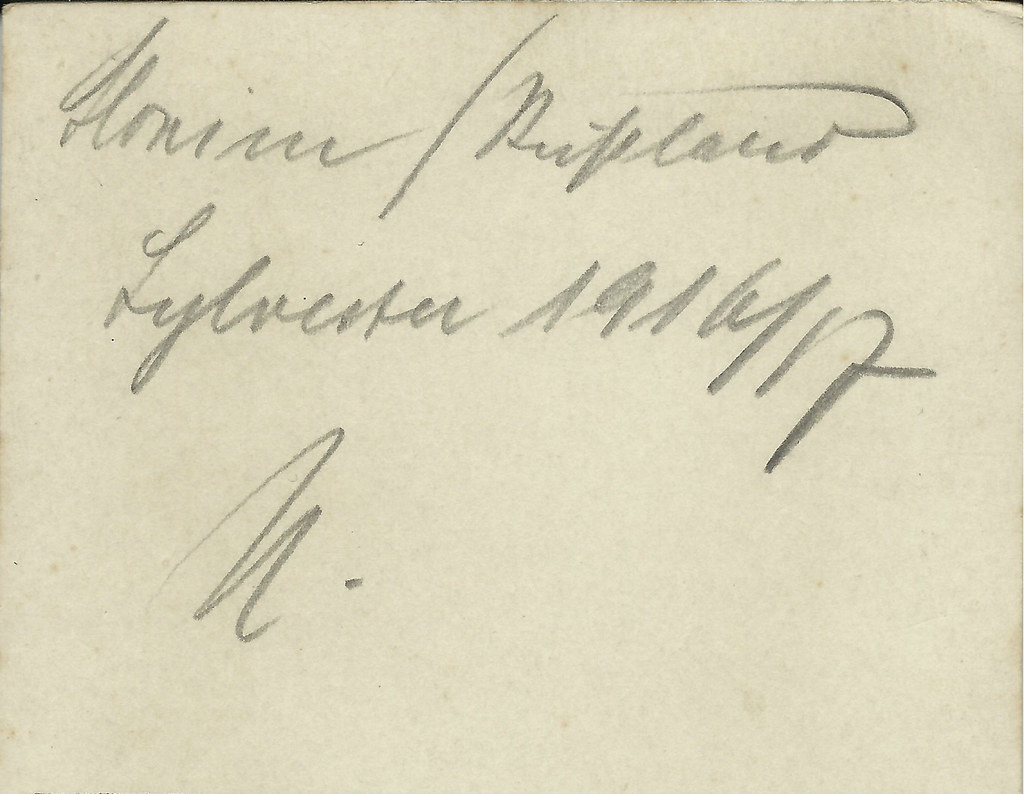 Slonim / Rußland
Sylvester 1916/17